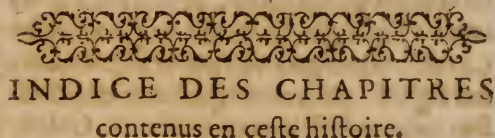 INDICE DES CHAPITRES
contenus en ceſte hiſtoire.